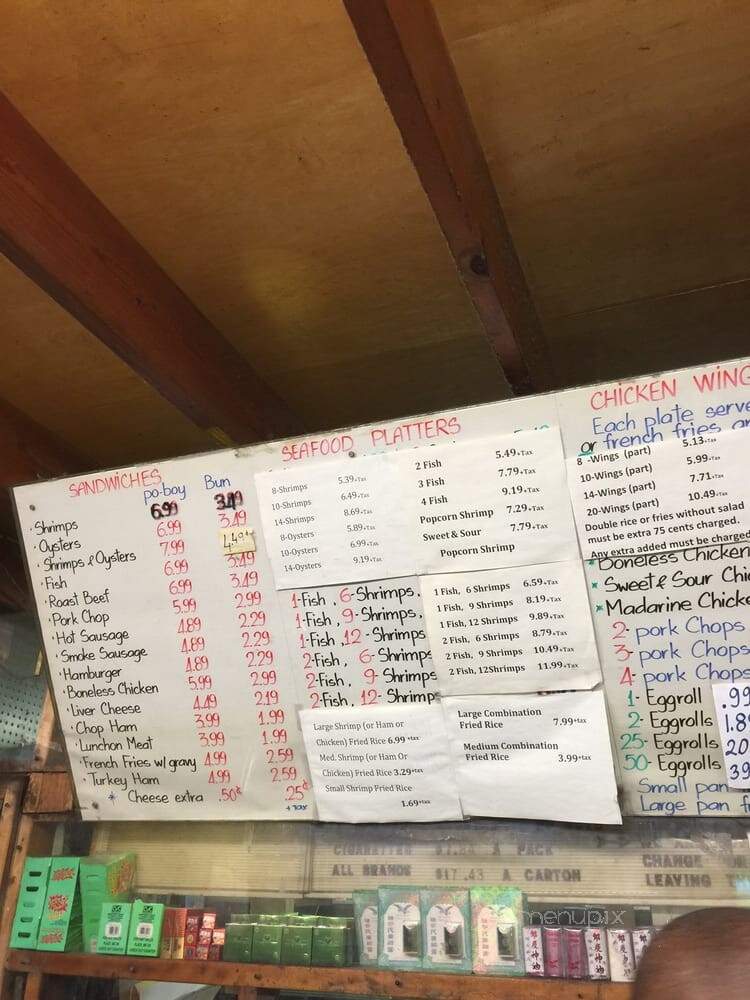 SANDWICHES
po-boy Bun
Shrimps 6.99 3.49
Oysters 6.99 3.49
Shrimps & Oysters 7.99 4.49
Fish 6.99 3.49
Roast Beef 6.99 3.49
Pork Chop 5.99 2.99
Hot Sausage 4.89 2.29
Smoke Sausage 4.89 2.29
Hamburger 4.89 2.29
Boneless Chicken 5.99 2.99
Liver Cheese 4.49 2.19
Chop Ham 3.99 1.99
Lunchon Meat 3.99 1.99
French Fries w/ gravy 4.99 2.59
Turkey Ham 4.99 2.59
* Cheese extra .50¢ .25¢
+TAX
SEAFOOD PLATTERS
8-Shrimps 5.39+Tax
10-Shrimps 6.49+Tax
14-Shrimps 8.69+Tax
8-Oysters 5.89+Tax
10-Oysters 6.99+Tax
14-Oysters 9.19+Tax
2 Fish 5.49+Tax
3 Fish 7.79+Tax
4 Fish 9.19+Tax
Popcorn Shrimp 7.29+Tax
Sweet & Sour 7.79+Tax
Popcorn Shrimp
1-Fish, 6-Shrimps,
1-Fish, 9-Shrimps,
1-Fish, 12-Shrimps
2-Fish, 6-Shrimps
2-Fish, 9-Shrimps
2-Fish, 12-Shrimps
1 Fish, 6 Shrimps 6.59+Tax
1 Fish, 9 Shrimps 8.19+Tax
1 Fish, 12 Shrimps 9.89+Tax
2 Fish, 6 Shrimps 8.79+Tax
2 Fish, 9 Shrimps 10.49+Tax
2 Fish, 12Shrimps 11.99+Tax
Large Shrimp (or Ham or
Chicken) Fried Rice 6.99 +tax
Med. Shrimp (or Ham Or
Chicken) Fried Rice 3.29+tax
Small Shrimp Fried Rice
1.69+tax
Large Combination
Fried Rice 7.99+tax
Medium Combination
Fried Rice 3.99+tax
CHICKEN WING
Each plate serve
or french fries an
8 -Wings (part) 5.13+Tax
10-Wings (part) 5.99+Tax
14-Wings (part) 7.71+Tax
20-Wings (part) 10.49+Tax
Double rice or fries without salad
must be extra 75 cents charged.
Any extra added must be charged
Boneless Chicken
* Sweet & Sour Chi
* Madarine Chicke
2- pork Chops
3- pork Chops
4- pork Chops
1- Eggroll .99
2- Eggrolls 1.8
25- Eggrolls 20.
50- Eggrolls 39
Small pan
Large pan f
CIGARETTES $1.84 A PACK
ALL BRANDS $17.43 A CARTON
CHANGE
LEAVING TH
menupix